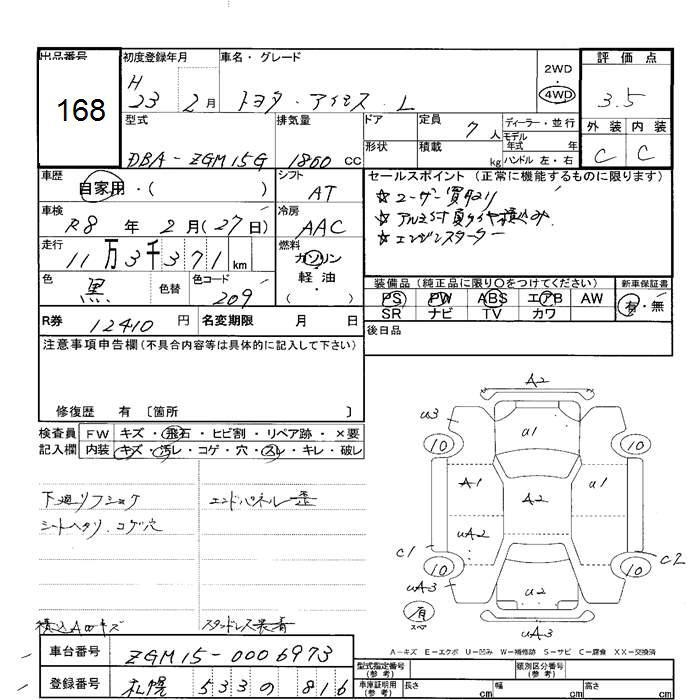 出品番号 168
初度登録年月 H 23 2月
車名・グレード トヨタ・アイシス L
2WD・4WD
評価点 3.5
外装 C 内装 C
型式 DBA-ZGM15G
排気量 1800 CC
ドア 形状
定員 7人
積載 kg
ディーラー・並行
モデル年式 年
ハンドル 左・右
車歴 自家用・( )
シフト AT
セールスポイント (正常に機能するものに限ります)
☆ユーザー買取り
☆アルミ付夏タイヤ積込み
☆エンジンスターター
車検 R8年 2月(27日)
冷房 AAC
走行 11万3千371km
燃料 ガソリン 軽油・( )
色 黒 色替
色コード 209
装備品 (純正品に限り〇をつけてください)
PS PW ABS エアB AW
SR ナビ TV カワ
新車保証書 有・無
R券 12410円
名変期限 月 日
後日品
注意事項申告欄(不具合内容等は具体的に記入して下さい)
修復歴 有 〔箇所 〕
検査員 FW キズ・飛石・ヒビ割・リペア跡・×要
記入欄 内装 キズ・汚レ・コゲ・穴・スレ・キレ・破レ
下廻リフショク
シートヘタリ.コゲ穴
エンドパネル歪
積込AWキズ
A2
u3
u1
10
10
A1
u1
A2
uA2
C1
C2
10
10
uA3
u2
有 スペア
uA3
A−キズ E−エクボ U−凹み W−補修跡 S−サビ C−腐食 XX−交換済
車台番号 ZGM15-0006973
登録番号 札幌 533 の 816
型式指定番号(参考)
類別区分番号(参考)
車庫証明用(参考) 長さ cm 幅 cm 高さ cm